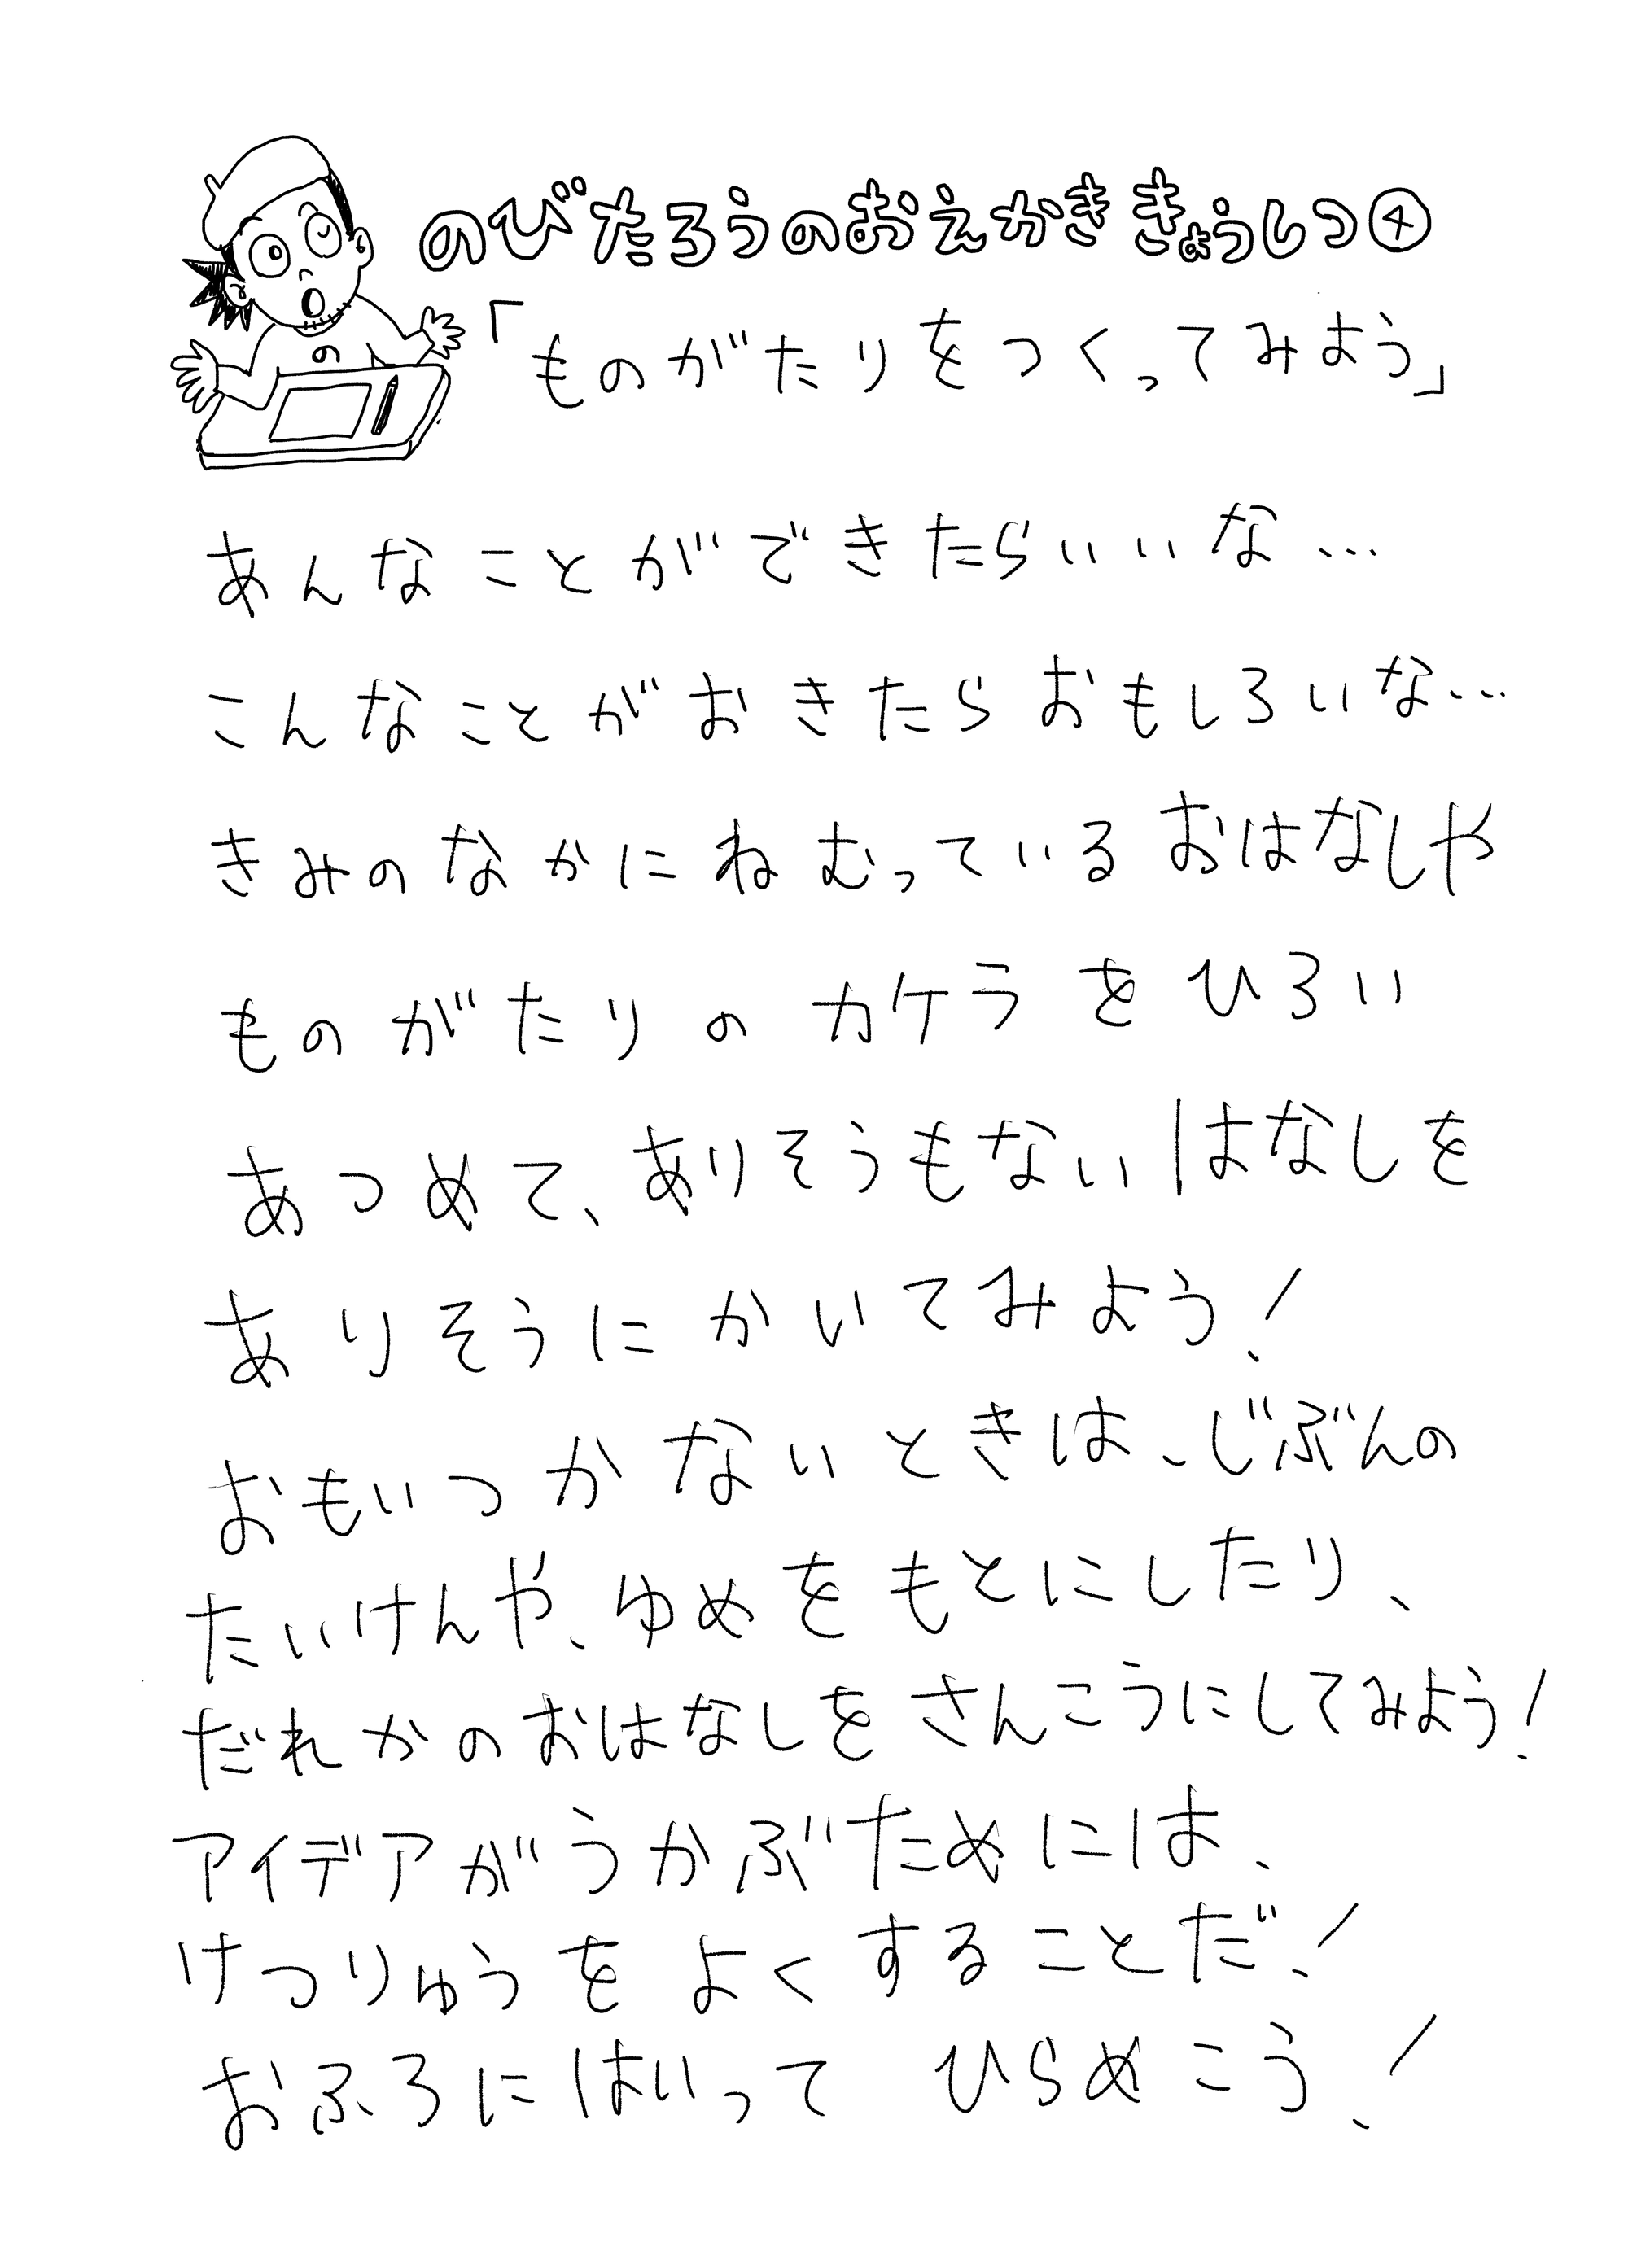 のびたろうのおえかききょうしつ④
「ものがたりをつくってみよう」
あんなことができたらいいな…
こんなことがおきたらおもしろいな…
きみのなかにねむっているおはなしや
ものがたりのカケラをひろい
あつめて、ありそうもないはなしを
ありそうにかいてみよう！
おもいつかないときは、じぶんの
たいけんや、ゆめをもとにしたり、
だれかのおはなしをさんこうにしてみよう！
アイデアがうかぶためには、
けつりゅうをよくすることだ！
おふろにはいって ひらめこう！
の